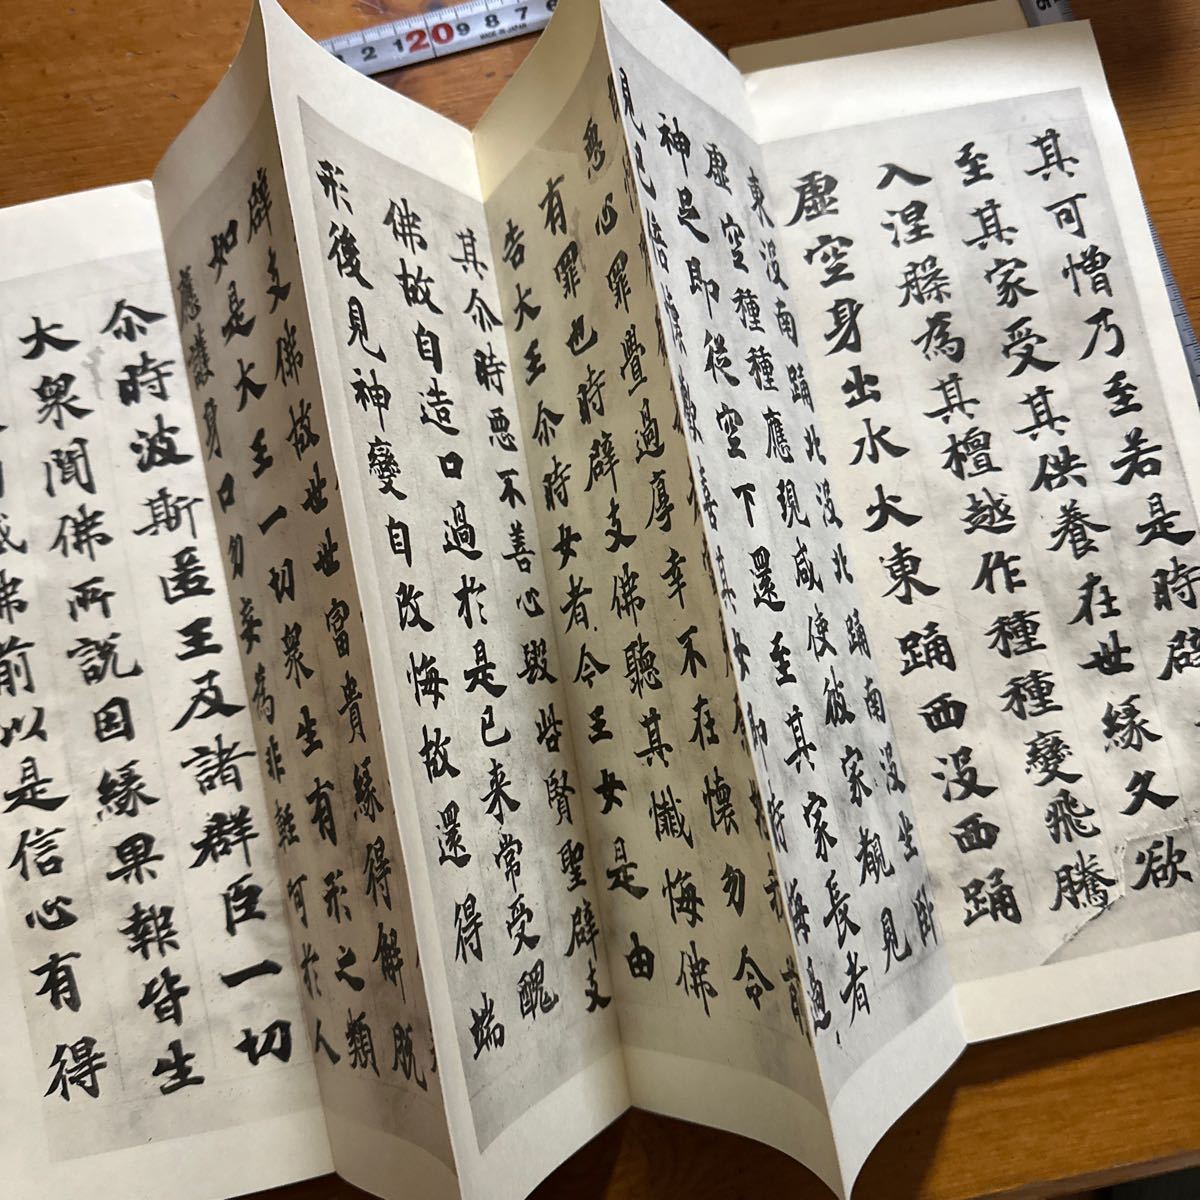 其可憎乃至若是時辟
至其家受其供養在世緣久欲
入涅槃為其檀越作種種變飛騰
虛空身出水火東踊西没西踊
東没南踊北没北踊南没坐卧
虛空種種應現咸使彼家覩見
神足即從空下還至其家長者
見已倍懷歡喜其女即時悔過
惡心罪舋過厚幸不在懷勿令
有罪也時辟支佛聽其懺悔佛
告大王尒時女者今王女是由
其尒時惡不善心毀呰賢聖辟支
佛故自造口過於是已来常受醜
形後見神變自改悔故還得端
辟支佛故世世富貴緣得解脱
如是大王一切衆生有形之類
應護身口勿妄為非輕呵於人
尒時波斯匿王及諸群臣一切
大衆聞佛所説因緣果報皆生
感佛前以是信心有得
2 1 20 9 8 7 6
MADE IN JAPAN